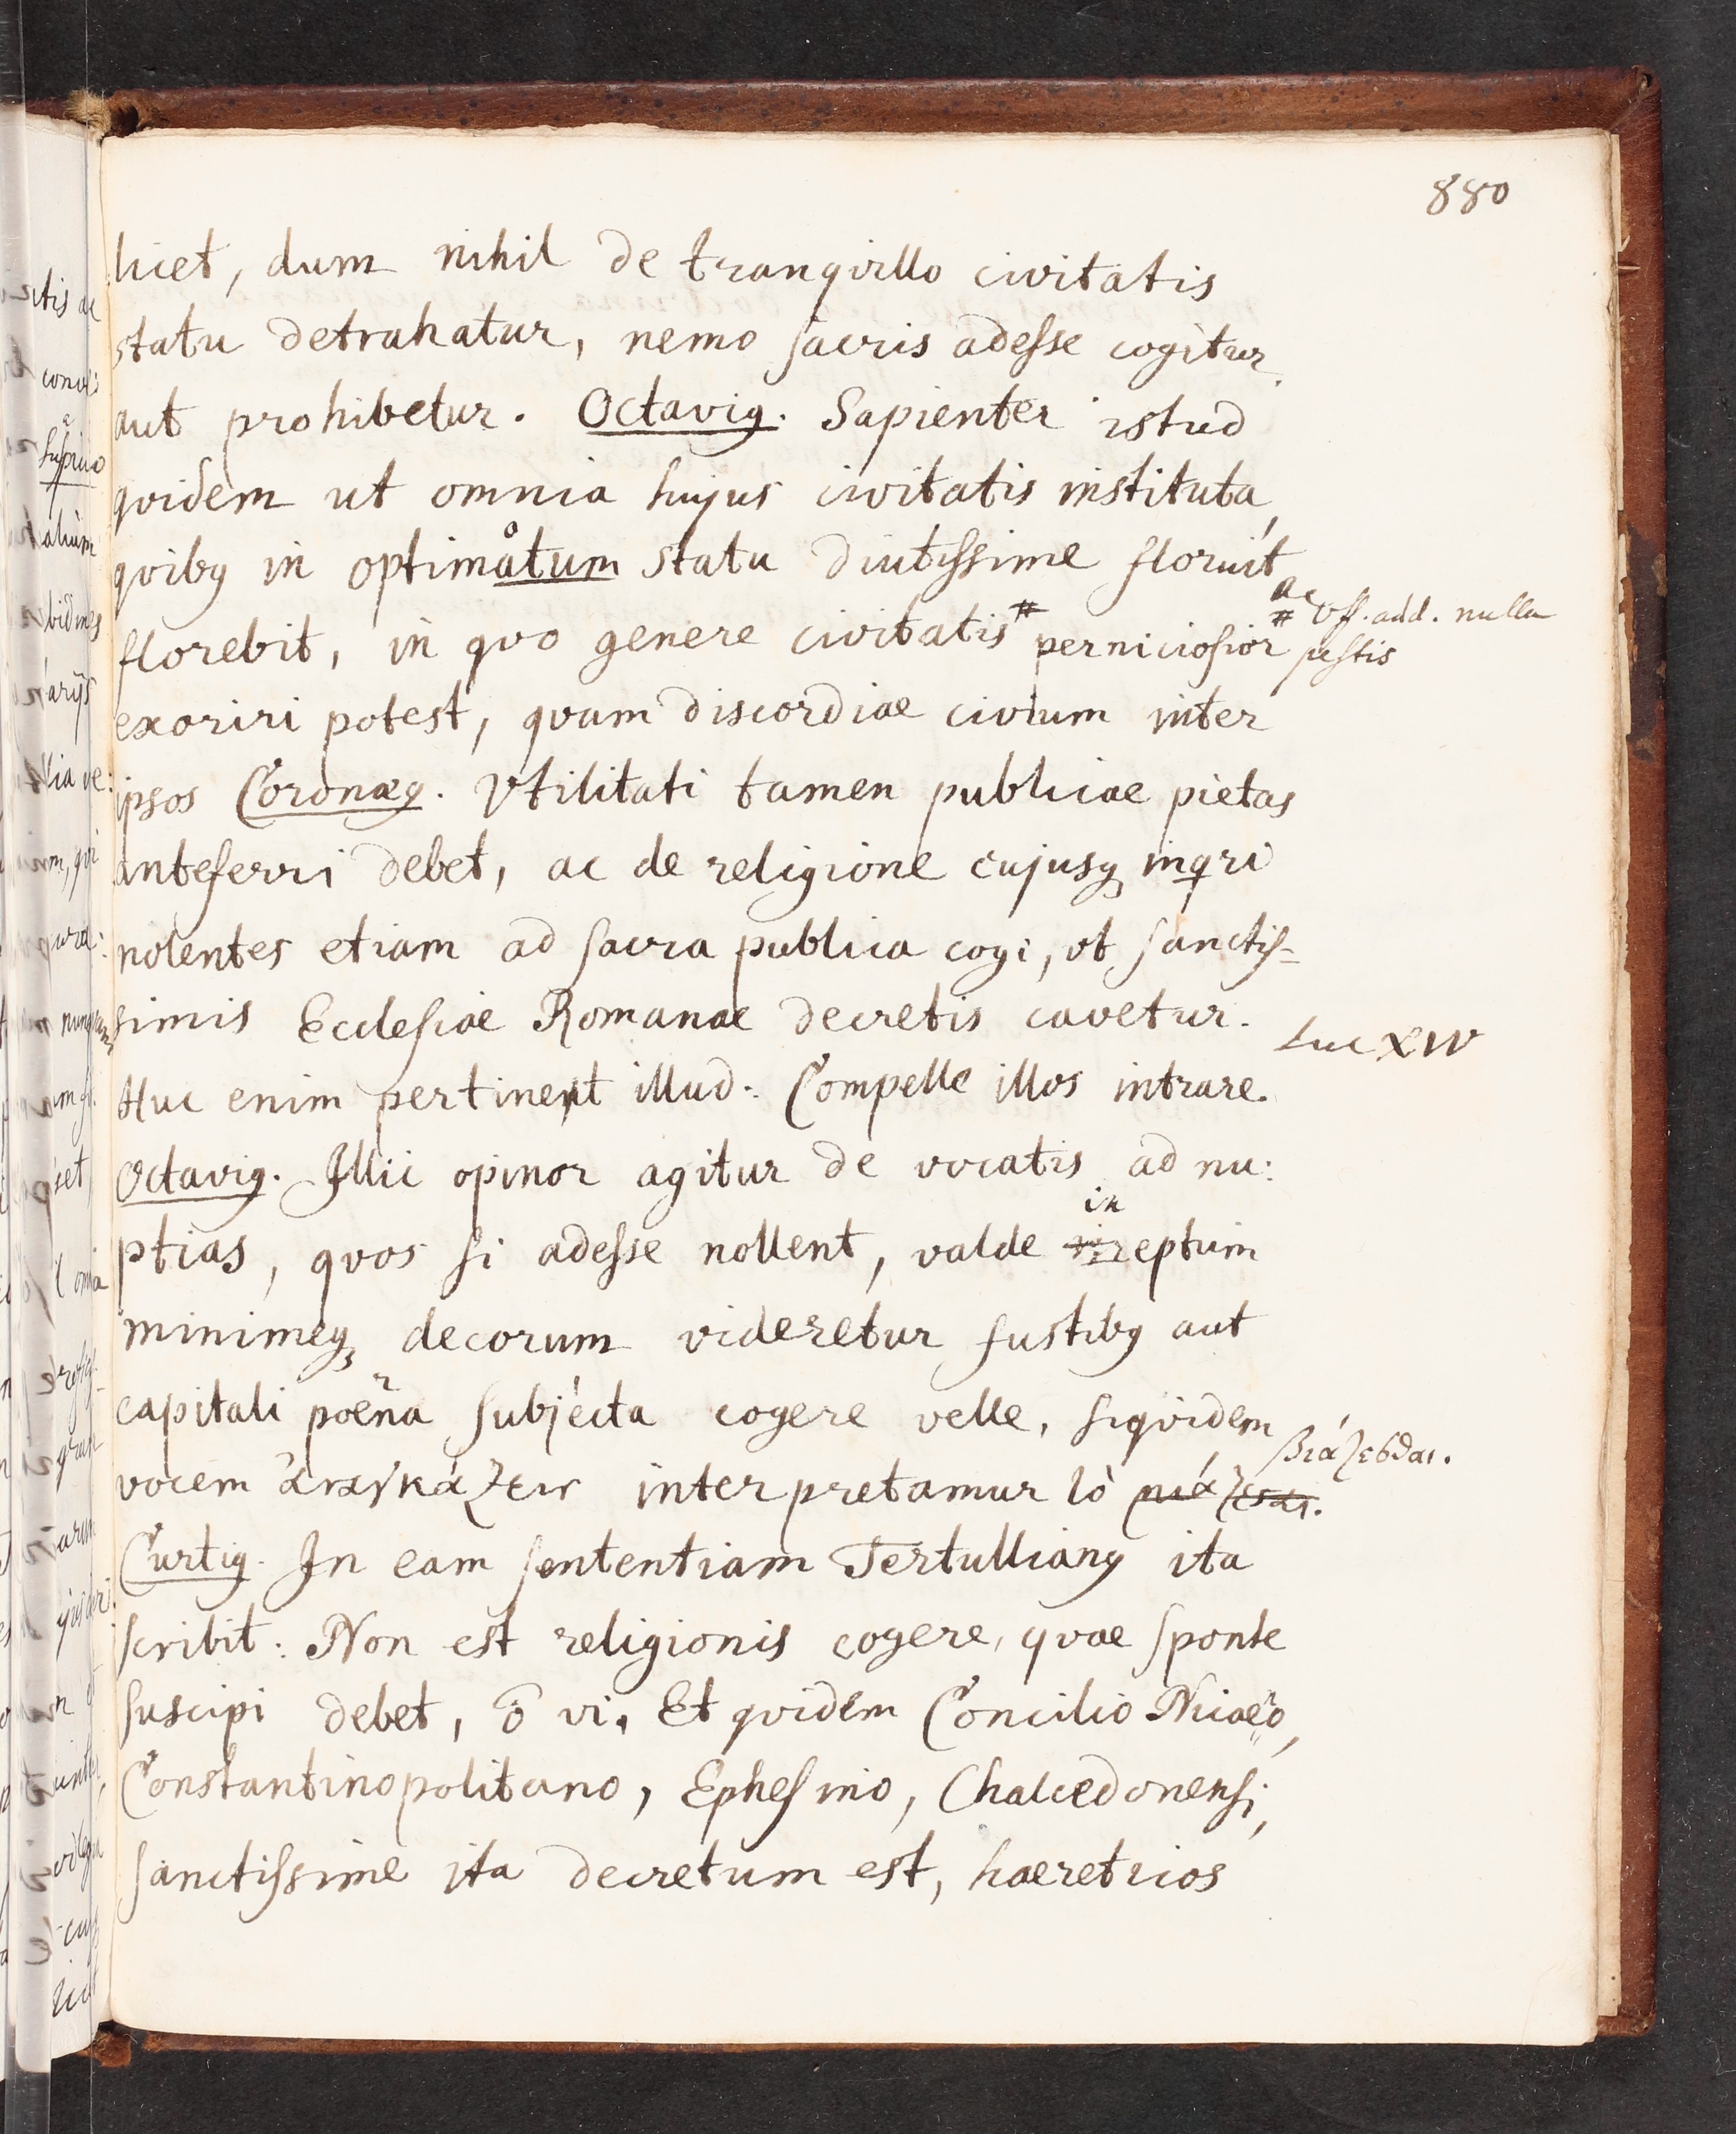 880
licet, dum nihil de tranqvillo civitatis
statu detrahatur, nemo sacris adesse cogitur
aut prohibetur. Octavig. Sapienter istud
qvidem ut omnia hujus civitatis instituta,
qvibg in optimatum statu diutissime floruit
ac
florebit, in qvo genere civitatis # perniciosior
# Uff. add. nulla
pestis
exoriri potest, qvam discordiae civium inter
ipsos Coronaeg. Vtilitati tamen publicae pietas
anteferri debet, ac de religione cujusq inqri
nolentes etiam ad sacra publica cogi, vt sanctis-
simis Ecclesiae Romanae decretis cavetur.
Luc XIV
Huc enim pertinent illud: Compelle illos intrare.
Octavig. Illic opinor agitur de vocatis ad nu:
in
ptias, qvos si adesse nollent, valde eptum
minimeq decorum videretur fustibg aut
capitali poena subjecta cogere velle, siqvidem
βιάζεσθαι.
vocem ἀναγκάζειν interpretamur τὸ
Curtig. In eam sententiam Tertulliang ita
scribit: Non est religionis cogere, qvae sponte
suscipi debet, ō vi. Et qvidem Concilio Nicaeo,
Constantinopolitano, Ephesino, Chalcedonensi,
sanctissime ita decretum est, haereticos